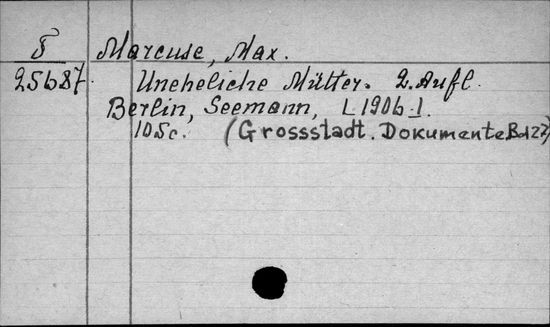 F Marcuse, Max.
25687. Uneheliche Mütter. 2. Aufl.
Berlin, Seemann, [1906].
105c. (Grossstadt. Dokumente Bd 27)